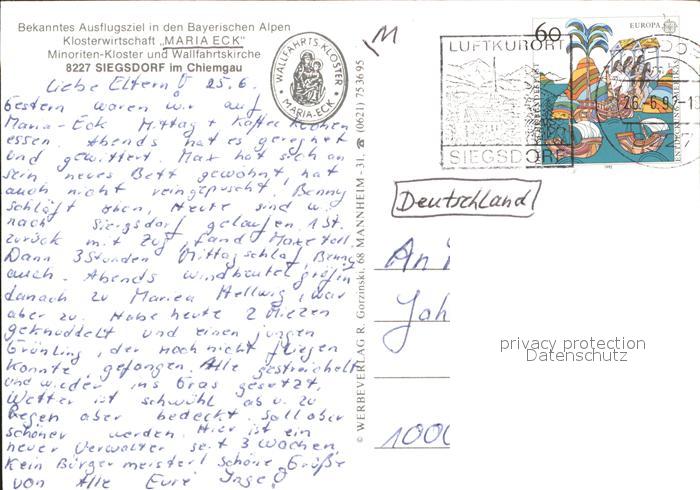 Bekanntes Ausflugsziel in den Bayerischen Alpen
Klosterwirtschaft „MARIA ECK"
Minoriten-Kloster und Wallfahrtskirche
8227 SIEGSDORF im Chiemgau
WALLFAHRTS-KLOSTER
MARIA-ECK
Liebe Eltern! 25.6.
Gestern waren wir auf
Maria-Eck Mittag + Kaffee Kuchen
essen. Abends hat es geregnet
und gewittert. Max hat sich an
sein neues Bett gewöhnt, hat
auch nicht reingepuscht. Benny
schläft oben. Heute sind w.
nach Siegsdorf gelaufen 1 St.
zurück mit Zug, fand Maxe toll.
Dann 3 Stunden Mittagschlaf, Benny
auch. Abends Windbeutelgräfin
danach zu Maria Hellwig, war
aber zu. Habe heute 2 Miezen
geknuddelt und einen jungen
Grünling, der noch nicht fliegen
konnte, gefangen. Alle gestreichelt
und wieder ins Gras gesetzt.
Wetter ist schwühl ab u. zu
Regen aber bedeckt. Soll aber
schöner werden. Hier ist ein
neuer Verwalter seit 3 Wochen,
Kein Bürgermeister! Schöne Grüße
von Alle Eure Inge!
© WERBEVERLAG R. Gorzinski, 68 MANNHEIM - 31, ☎ (0621) 75 36 95
LUFTKURORT
SIEGSDORF
60
EUROPA
26.6.92-1
1992
Deutschland
An
Joh
1000
privacy protection
Datenschutz